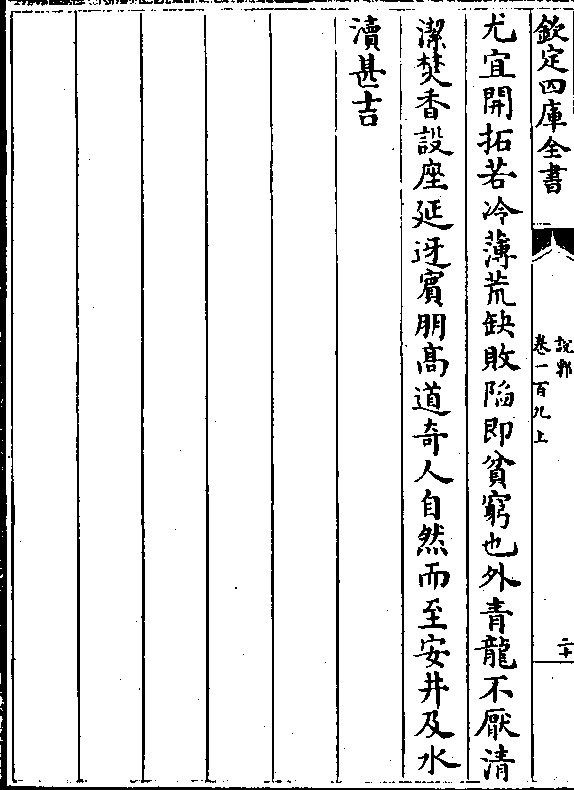 欽定四庫全書
說郛
卷一百九上
二十
尤宜開拓若冷薄荒缺敗陷即貧窮也外青龍不厭清
潔焚香設座延迓賓朋髙道奇人自然而至安井及水
瀆甚吉